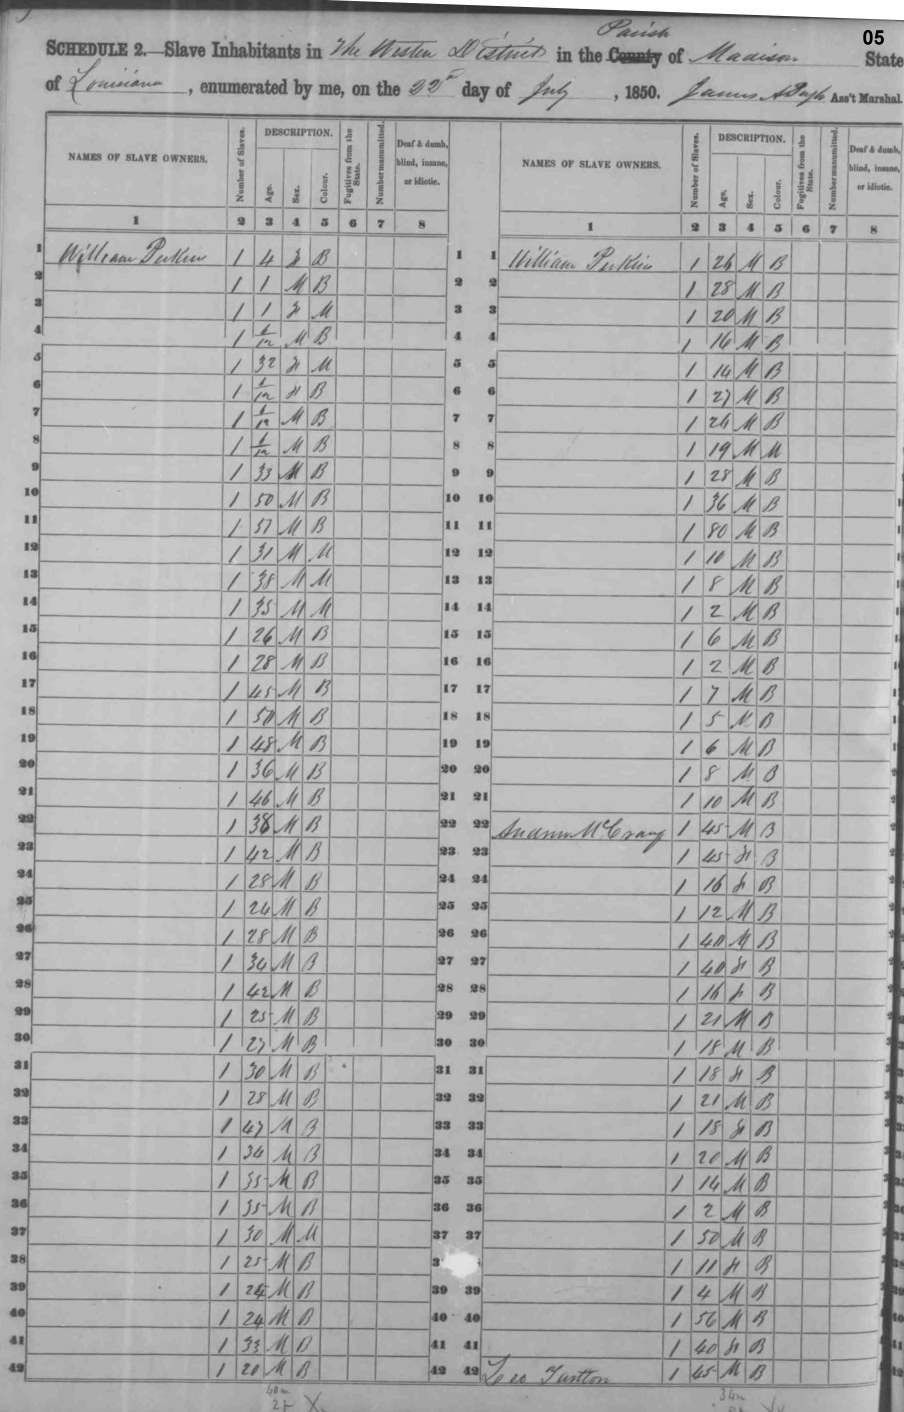 05
Parish
SCHEDULE 2.—Slave Inhabitants in The Western District in the County of Madison State
of Louisiana, enumerated by me, on the 22d day of July, 1850. James A Ass't Marshal.
NAMES OF SLAVE OWNERS. Number of Slaves. DESCRIPTION. Age. Sex. Colour. Fugitives from the State. Number manumitted. Deaf & dumb, blind, insane, or idiotic. NAMES OF SLAVE OWNERS. Number of Slaves. DESCRIPTION. Age. Sex. Colour. Fugitives from the State. Number manumitted. Deaf & dumb, blind, insane, or idiotic.
1 2 3 4 5 6 7 8 1 2 3 4 5 6 7 8
1 William Perkins 1 4 F B 1 1 William Perkins 1 26 M B
2 1 1 M B 2 2 1 28 M B
3 1 1 F M 3 3 1 20 M B
4 1 /12 M B 4 4 1 16 M B
5 1 32 F M 5 5 1 14 M B
6 1 /12 F B 6 6 1 27 M B
7 1 /12 M B 7 7 1 26 M B
8 1 /12 M B 8 8 1 19 M M
9 1 33 M B 9 9 1 28 M B
10 1 50 M B 10 10 1 36 M B
11 1 57 M B 11 11 1 80 M B
12 1 31 M M 12 12 1 10 M B
13 1 38 M M 13 13 1 8 M B
14 1 35 M M 14 14 1 2 M B
15 1 26 M B 15 15 1 6 M B
16 1 28 M B 16 16 1 2 M B
17 1 45 M B 17 17 1 7 M B
18 1 50 M B 18 18 1 5 M B
19 1 48 M B 19 19 1 6 M B
20 1 36 M B 20 20 1 8 M B
21 1 46 M B 21 21 1 10 M B
22 1 38 M B 22 22 Andrew McCrany 1 45 M B
23 1 42 M B 23 23 1 45 F B
24 1 28 M B 24 24 1 16 F B
25 1 24 M B 25 25 1 12 M B
26 1 28 M B 26 26 1 40 M B
27 1 34 M B 27 27 1 40 F B
28 1 42 M B 28 28 1 16 F B
29 1 25 M B 29 29 1 21 M B
30 1 27 M B 30 30 1 18 M B
31 1 30 M B 31 31 1 18 F B
32 1 28 M B 32 32 1 21 M B
33 1 47 M B 33 33 1 18 F B
34 1 34 M B 34 34 1 20 M B
35 1 35 M B 35 35 1 14 M B
36 1 35 M B 36 36 1 2 M B
37 1 30 M M 37 37 1 50 M B
38 1 25 M B 3 1 11 F B
39 1 24 M B 39 39 1 4 M B
40 1 24 M B 40 40 1 56 M B
41 1 33 M B 41 41 1 40 F B
42 1 20 M B 42 42 Leo 1 45 M B
40m 34m
2F